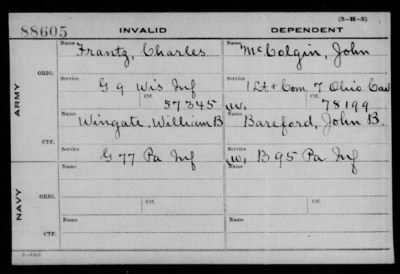 (3-H-3)
88605 INVALID DEPENDENT
Name Name
Frantz, Charles McColgin, John
ORIG. Service Service
G 9 Wis Inf 1 Lt & Com 7 Ohio Cav
Ctf. Ctf.
57345 W. 78199
ARMY
Name Name
Wingate, William B Bareford, John B.
CTF. Service Service
G 77 Pa Inf W. B 95 Pa Inf
Name Name
ORIG.
Service Ctf. Service Ctf.
NAVY
Name Name
CTF.